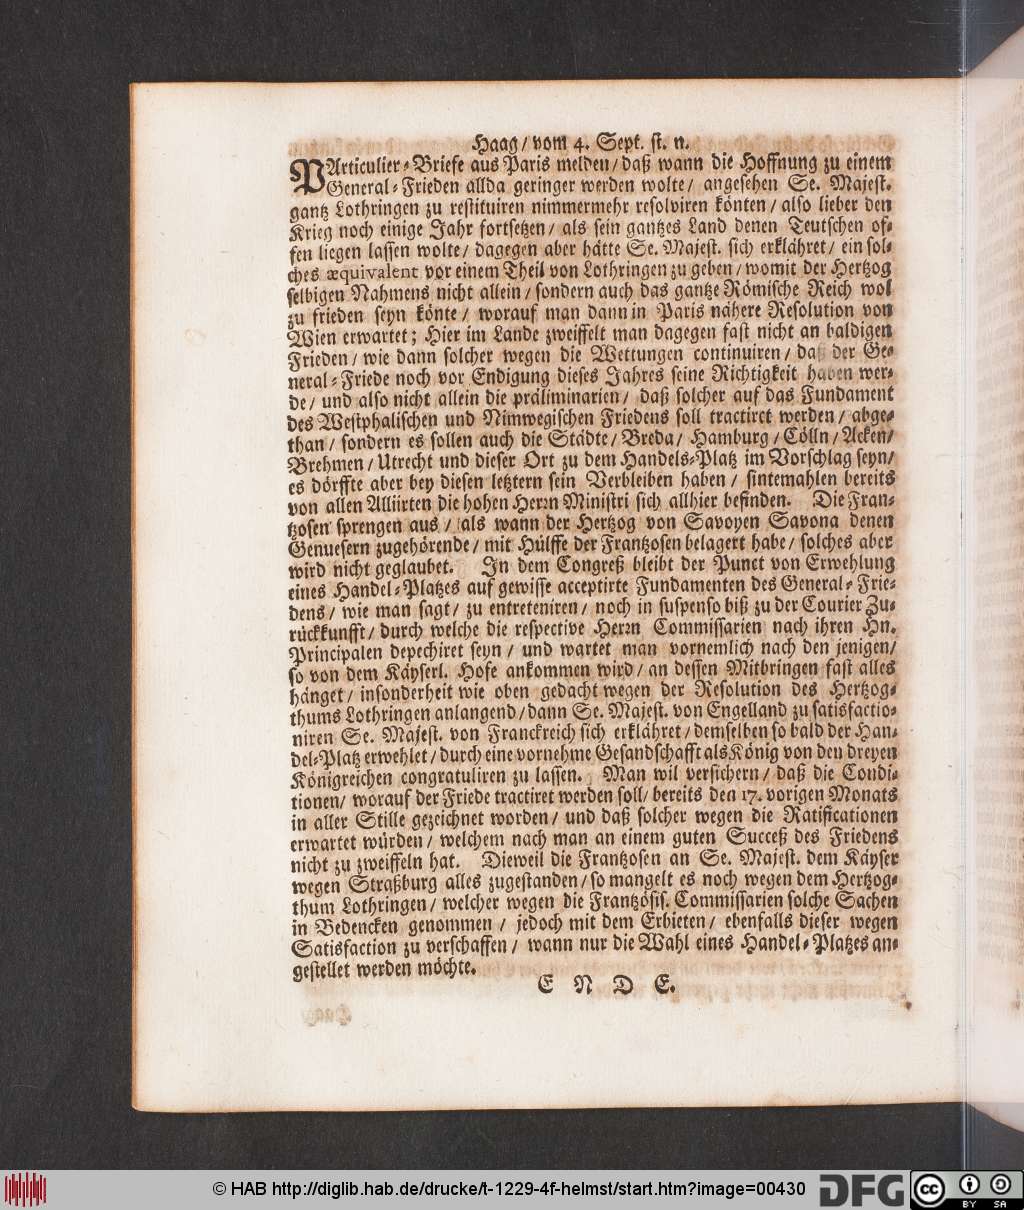 Haag / vom 4. Sept. st. n.
PArticulier-Briefe aus Paris melden / daß wann die Hoffnung zu einem
General-Frieden allda geringer werden wolte / angesehen Se. Majest.
gantz Lothringen zu restituiren nimmermehr resolviren könten / also lieber den
Krieg noch einige Jahr fortsetzen / als sein gantzes Land denen Teutschen of-
fen liegen lassen wolte / dagegen aber hätte Se. Majest. sich erklähret / ein sol-
ches æquivalent vor einem Theil von Lothringen zu geben / womit der Hertzog
selbigen Nahmens nicht allein / sondern auch das gantze Römische Reich wol
zu frieden seyn könte / worauf man dann in Paris nähere Resolution von
Wien erwartet; Hier im Lande zweiffelt man dagegen fast nicht an baldigen
Frieden / wie dann solcher wegen die Wettungen continuiren / daß der Ge-
neral-Friede noch vor Endigung dieses Jahres seine Richtigkeit haben wer-
de / und also nicht allein die präliminarien / daß solcher auf das Fundament
des Westphalischen und Nimwegischen Friedens soll tractiret werden / abge-
than / sondern es sollen auch die Städte / Breda / Hamburg / Cölln / Acken /
Brehmen / Utrecht und dieser Ort zu dem Handels-Platz im Vorschlag seyn /
es dörffte aber bey diesen letztern sein Verbleiben haben / sintemahlen bereits
von allen Alliirten die hohen Herrn Ministri sich allhier befinden. Die Fran-
tzosen sprengen aus / als wann der Hertzog von Savoyen Savona denen
Genuesern zugehörende / mit Hülffe der Frantzosen belagert habe / solches aber
wird nicht geglaubet. In dem Congreß bleibt der Punct von Erwehlung
eines Handel-Platzes auf gewisse acceptirte Fundamenten des General-Frie-
dens / wie man sagt / zu entreteniren / noch in suspenso biß zu der Courier Zu-
rückkunfft / durch welche die respective Herrn Commissarien nach ihren Hn.
Principalen depechiret seyn / und wartet man vornemlich nach den jenigen /
so von dem Käyserl. Hofe ankommen wird / an dessen Mitbringen fast alles
hänget / insonderheit wie oben gedacht wegen der Resolution des Hertzog-
thums Lothringen anlangend / dann Se. Majest. von Engelland zu satisfactio-
niren Se. Majest. von Franckreich sich erklähret / demselben so bald der Han-
del-Platz erwehlet / durch eine vornehme Gesandschafft als König von den dreyen
Königreichen congratuliren zu lassen. Man wil versichern / daß die Condi-
tionen / worauf der Friede tractiret werden soll / bereits den 17. vorigen Monats
in aller Stille gezeichnet worden / und daß solcher wegen die Ratificationen
erwartet würden / welchem nach man an einem guten Succeß des Friedens
nicht zu zweiffeln hat. Dieweil die Frantzosen an Se. Majest. dem Käyser
wegen Straßburg alles zugestanden / so mangelt es noch wegen dem Hertzog-
thum Lothringen / welcher wegen die Frantzösis. Commissarien solche Sachen
in Bedencken genommen / jedoch mit dem Erbieten / ebenfalls dieser wegen
Satisfaction zu verschaffen / wann nur die Wahl eines Handel-Platzes an-
gestellet werden möchte.
E N D E.
© HAB http://diglib.hab.de/drucke/t-1229-4f-helmst/start.htm?image=00430
DFG
cc BY SA